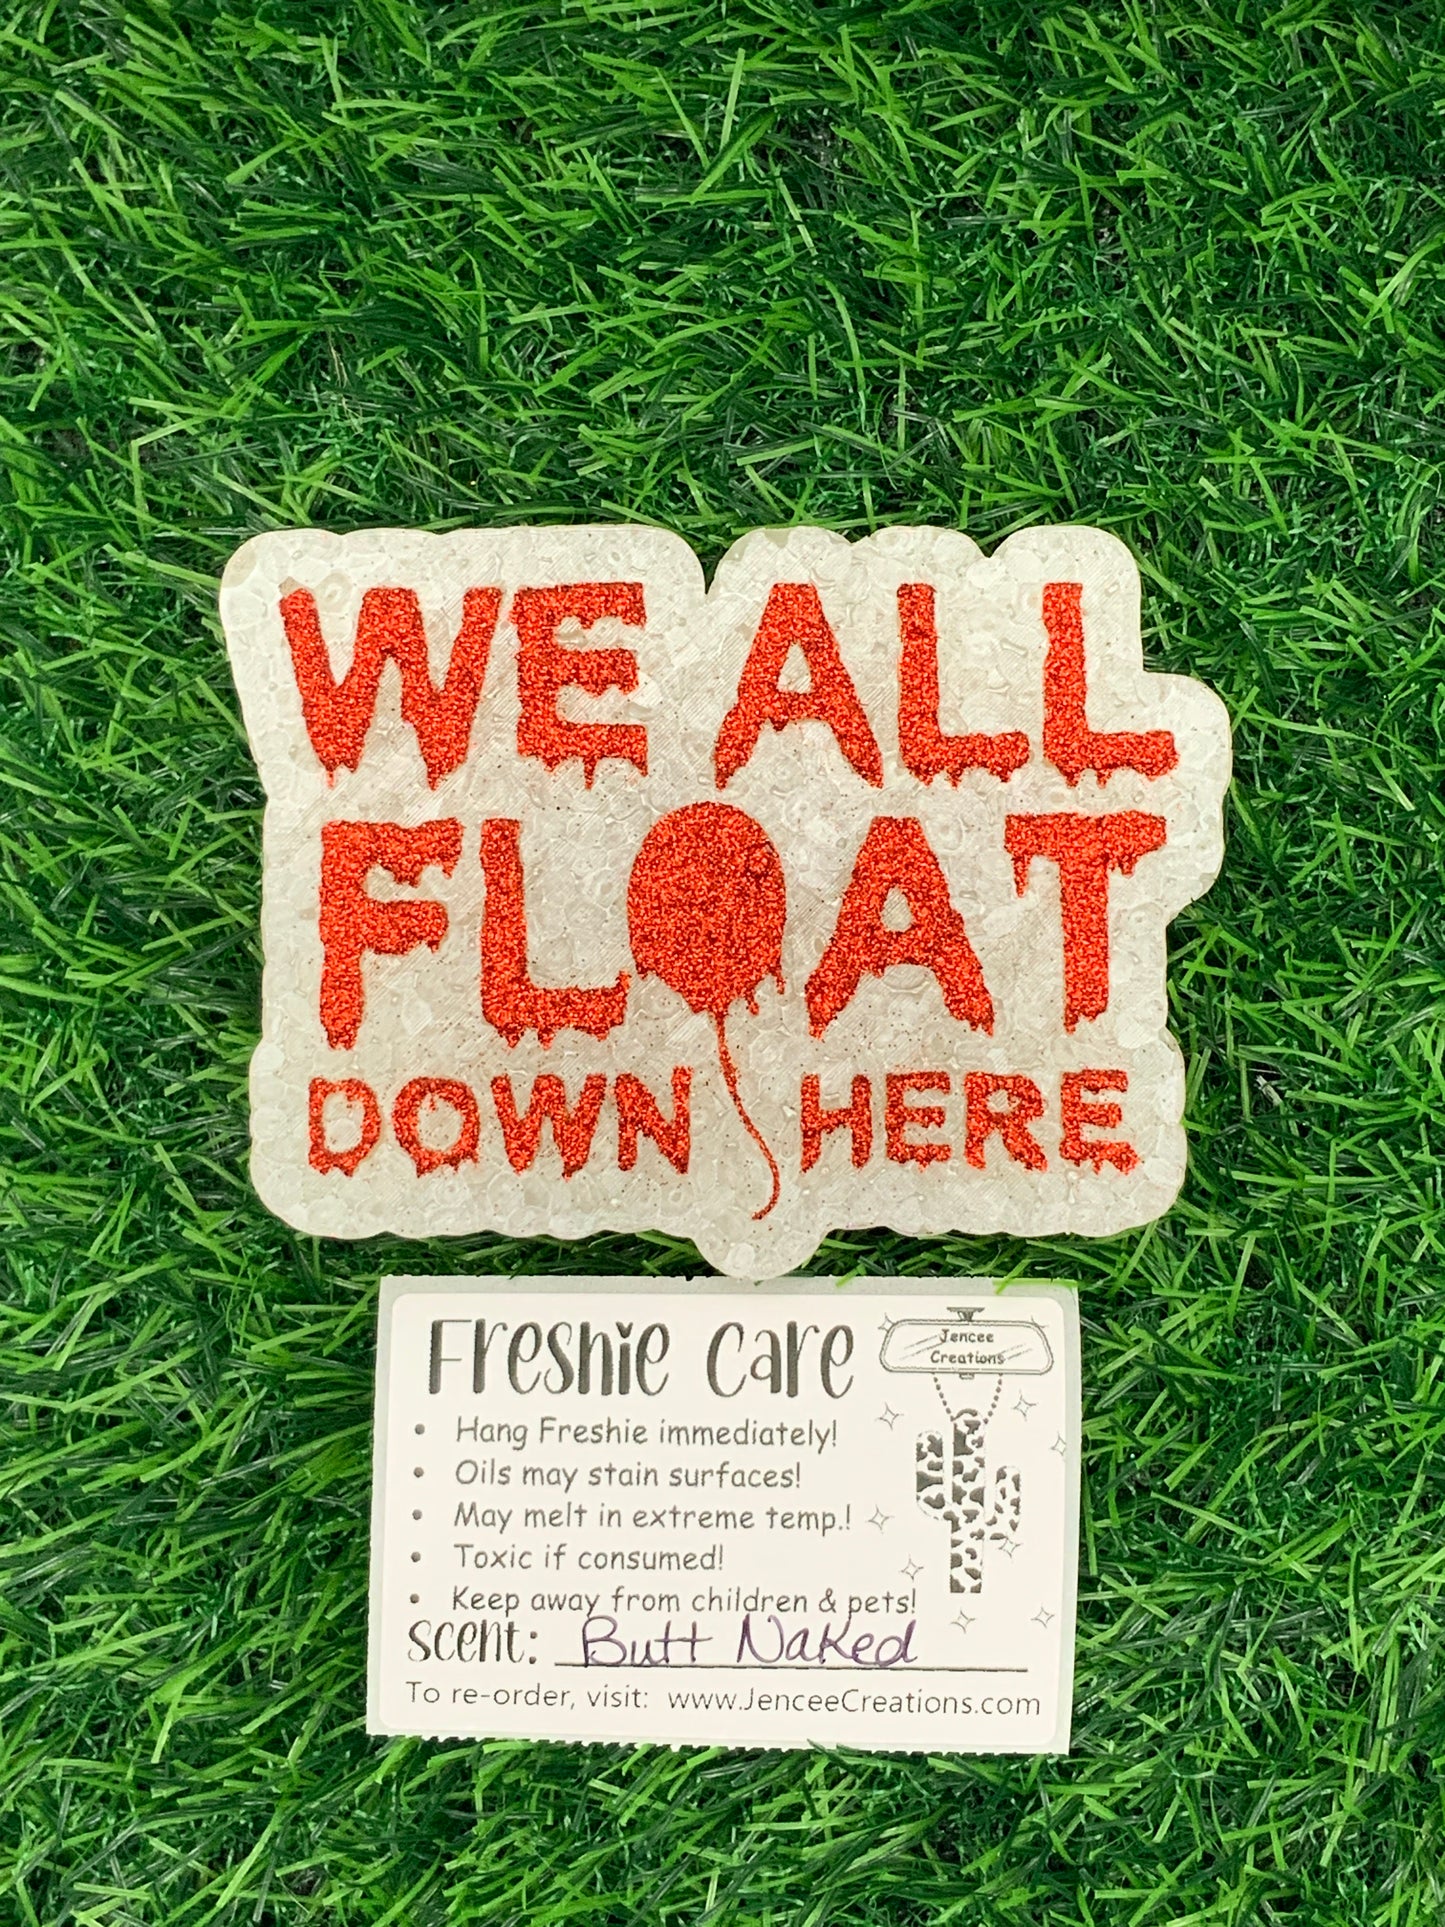 WE ALL
FLOAT
DOWN HERE
Freshie Care
Jencee
Creations
• Hang Freshie immediately!
• Oils may stain surfaces!
• May melt in extreme temp.!
• Toxic if consumed!
• Keep away from children & pets!
scent: Butt Naked
To re-order, visit: www.JenceeCreations.com